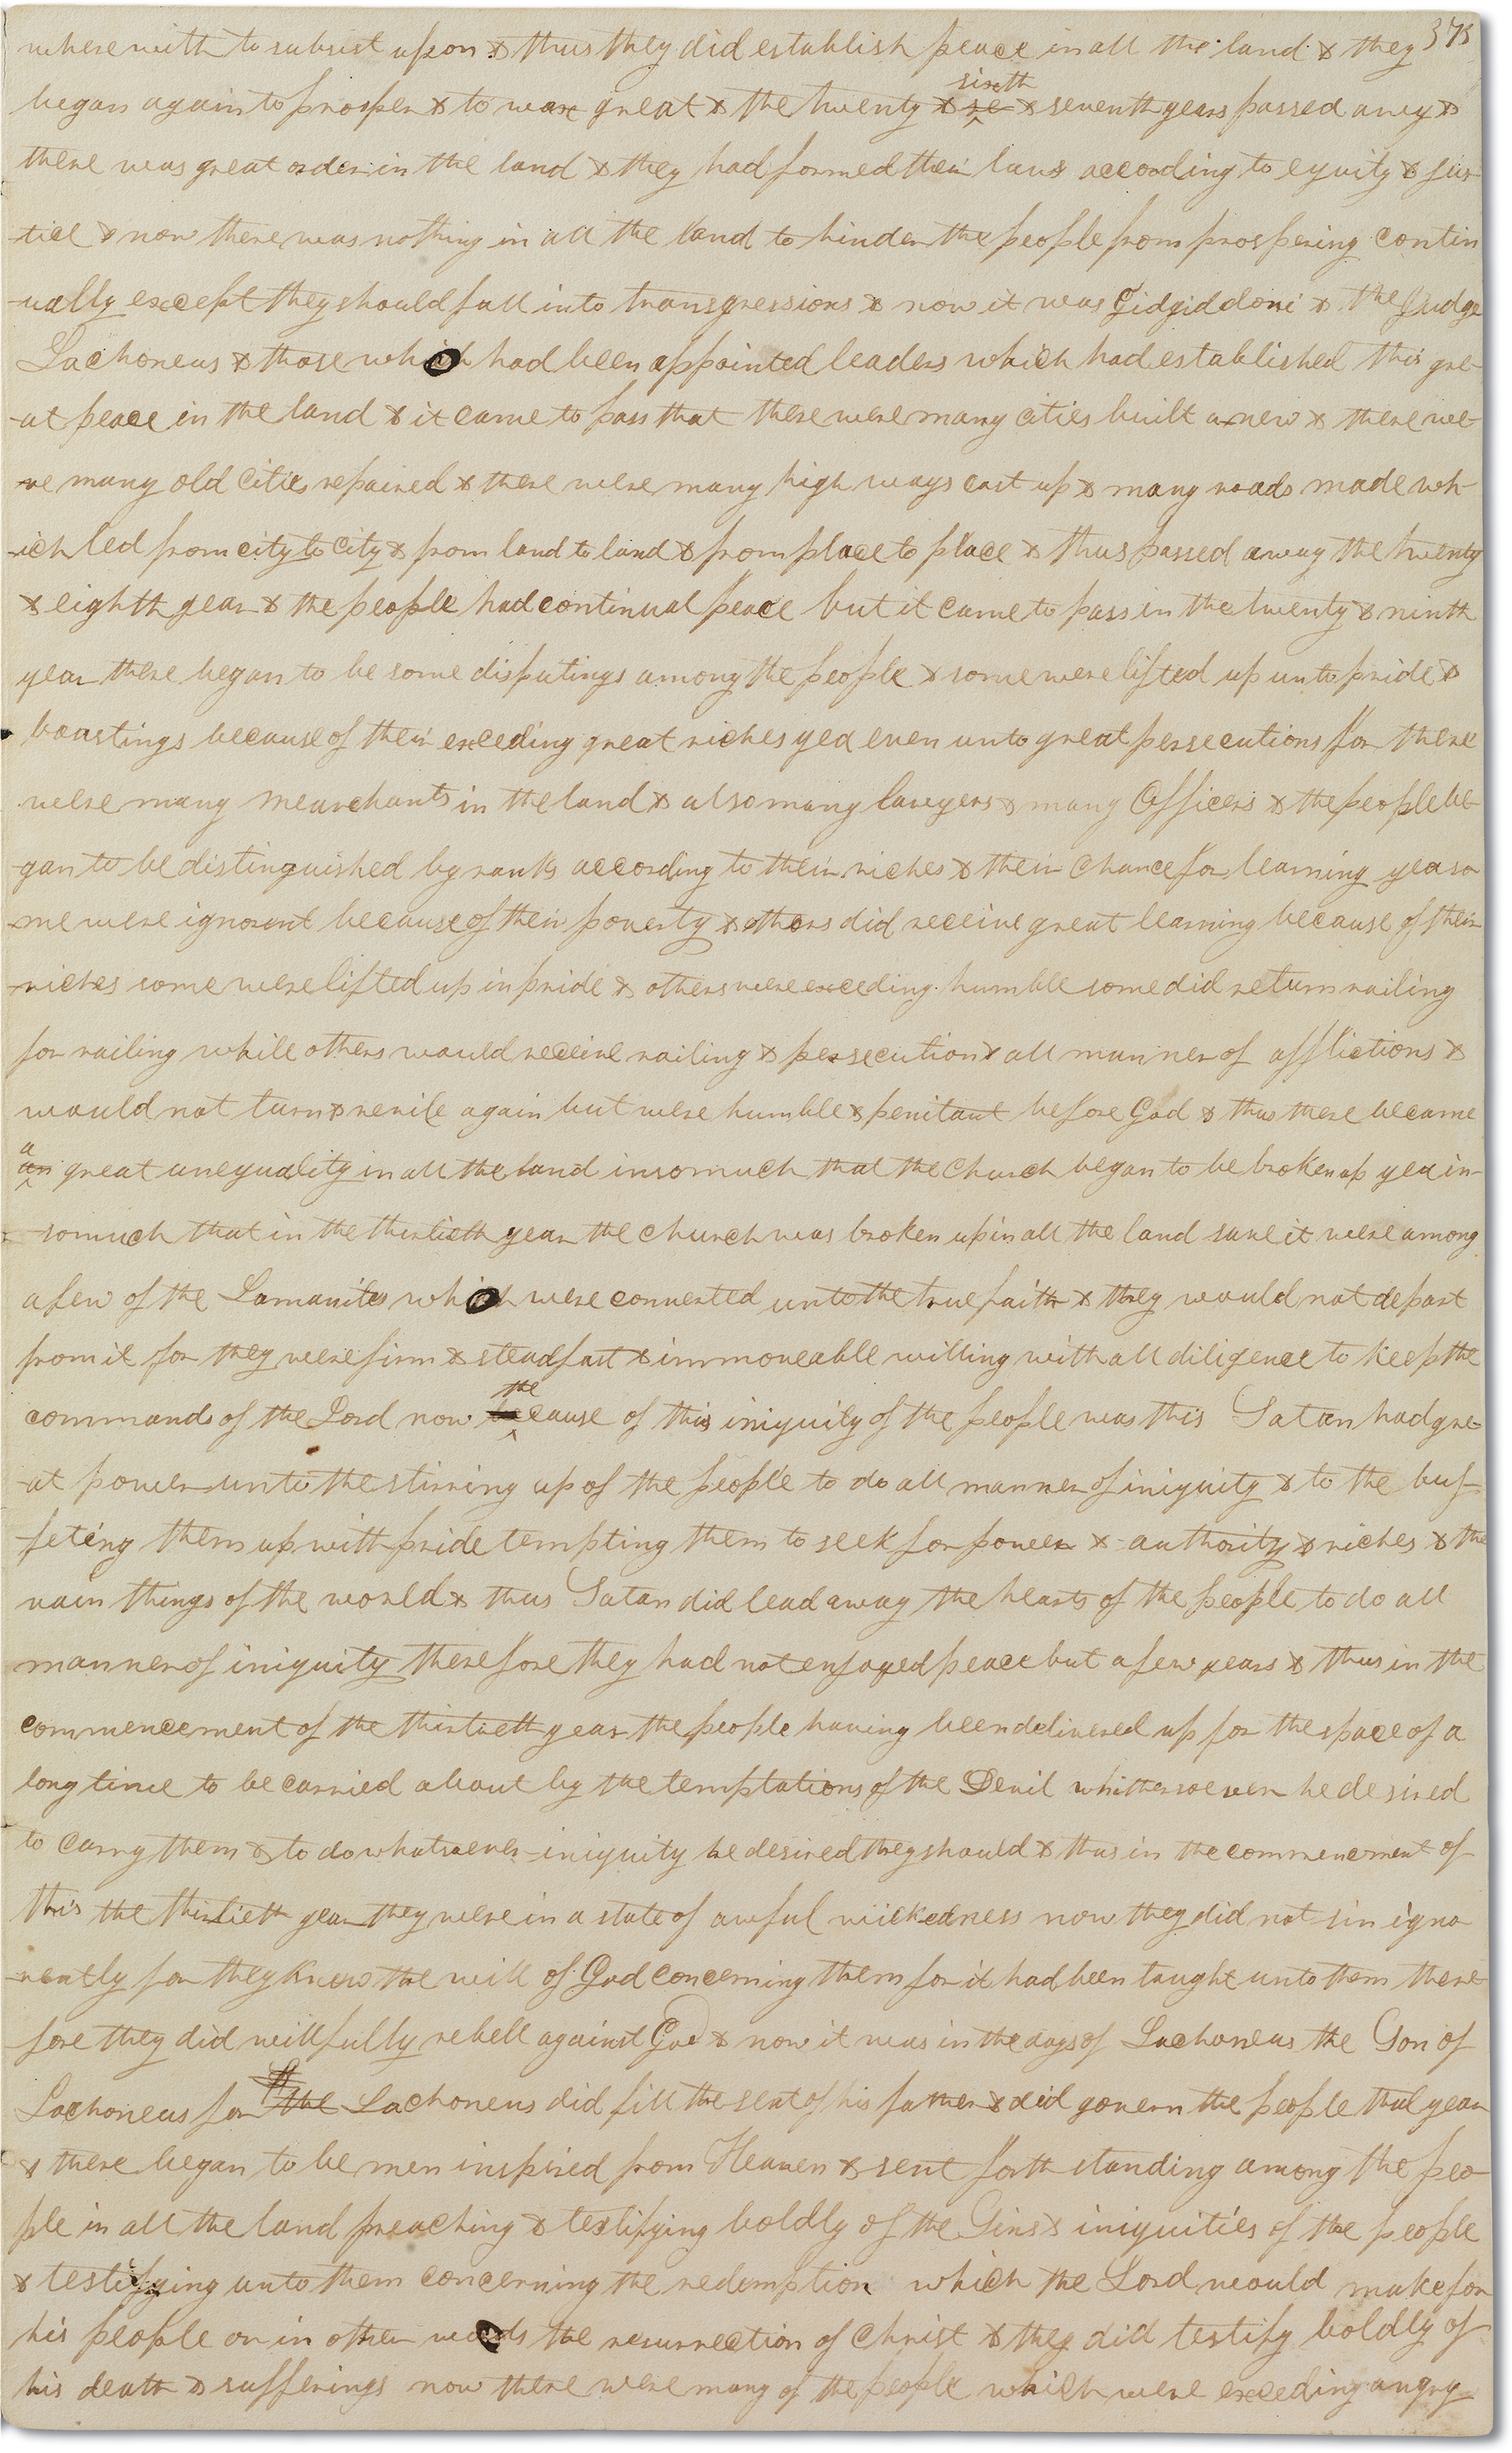 375
wherewith to subsist upon & thus they did establish peace in all the land & they
began again to prosper & to wax great & the twenty & se sixth & seventh years passed away &
there was great order in the land & they had formed their laws according to equity & jus-
-tice & now there was nothing in all the land to hinder the people from prospering contin
-ually except they should fall into transgressions & now it was Gidgiddoni & the Judge
Lachoneus & those which had been appointed leaders which had established this gre-
-at peace in the land & it came to pass that there were many cities built anew & there we-
-re many old cities repaired & there were many high ways cast up & many roads made wh-
-ich led from city to city & from land to land & from place to place & thus passed away the twenty
& eighth year & the people had continual peace but it came to pass in the twenty & ninth
year there began to be some disputings among the people & some were lifted up unto pride &
boastings because of their exceding great riches yea even unto great persecutions for there
were many mearchants in the land & also many lawyers & many Officers & the people be-
-gan to be distinguished by ranks according to their riches & their chance for learning yea so
-me were ignorant because of their poverty & others did receive great learning because of their
riches some were lifted up in pride & others were exceding humble some did return railing
for railing while others would receive railing & persecution & all manner of afflictions &
would not turn & revile again but were humble & penitant before God & thus there became
an a great unequality in all the land insomuch that the church began to be broken up yea in-
-somuch that in the thirtieth year the church was broken up in all the land save it were among
a few of the Lamanites which were converted unto the true faith & they would not depart
from it for they were firm & steadfast & immoveable willing with all diligence to keep the
commands of the Lord now be the cause of this iniquity of the people was this Satan had gre-
-at power unto the stirring up of the people to do all manner of iniquity & to the buf-
-feting them up with pride tempting them to seek for power & authority & riches & the
vain things of the world & thus Satan did lead away the hearts of the people to do all
manner of iniquity therefore they had not enjoyed peace but a few years & thus in the
commencement of the thirtieth year the people having been delivered up for the space of a
long time to be carried about by the temptations of the Devil whithersoever he desired
to carry them & to do whatsoever iniquity he desired they should & thus in the commencement of
this the thirtieth year they were in a state of awful wickedness now they did not sin igno
-rently for they knew the will of God concerning them for it had been taught unto them there
fore they did willfully rebell against God & now it was in the days of Lachoneus the Son of
Lachoneus for the Lachoneus did fill the seat of his father & did govern the people that year
& there began to be men inspired from Heaven & sent forth standing among the peo-
ple in all the land preaching & testifying boldly of the Sins & iniquities of the people
& testifying unto them concerning the redemption which the Lord would make for
his people or in other words the resurrection of Christ & they did testify boldly of
his death & sufferings now there were many of the people which were exceding angry